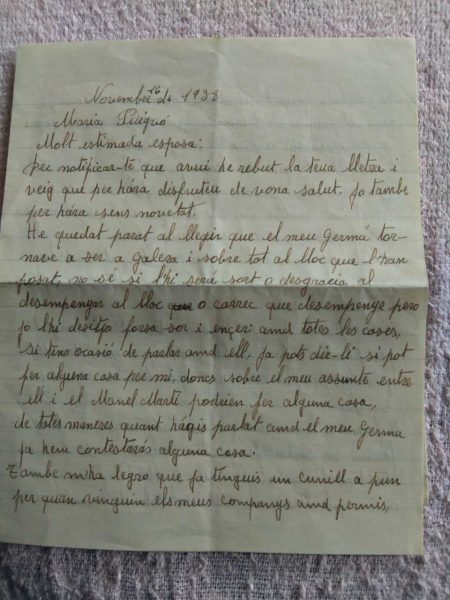 Novembre 16 de 1938
Maria Puigró
Molt estimada esposa:
per notificar-te que avui he rebut la teua lletra i
veig que per hára disfruteu de vona salut. Jo tambe
per hára sens novetat.
He quedat parat al llegir que el meu Germá tor-
nave a ser a Galera i sobre tot al lloc que l'han
posat, no sé si l'hi será sort o desgracia al
desempenyar al lloc o carrec que desempenye pero
Jo l'hi desitjo forsa sor i ençert amd totes les coses,
si tens ocasió de parlar amd ell, Ja pots dir-lé si pot
fer alguna cosa per mi, doncs sobre el meu assunte entre
ell i el Manel Martí podrien fer alguna cosa,
de totes maneres quant hágis parlat amd el meu Germa
Ja hem contestarás alguna cosa.
També m'ha legro que Ja tinguis un cunill a pun
per quan vinguin els meus companys amd permis,